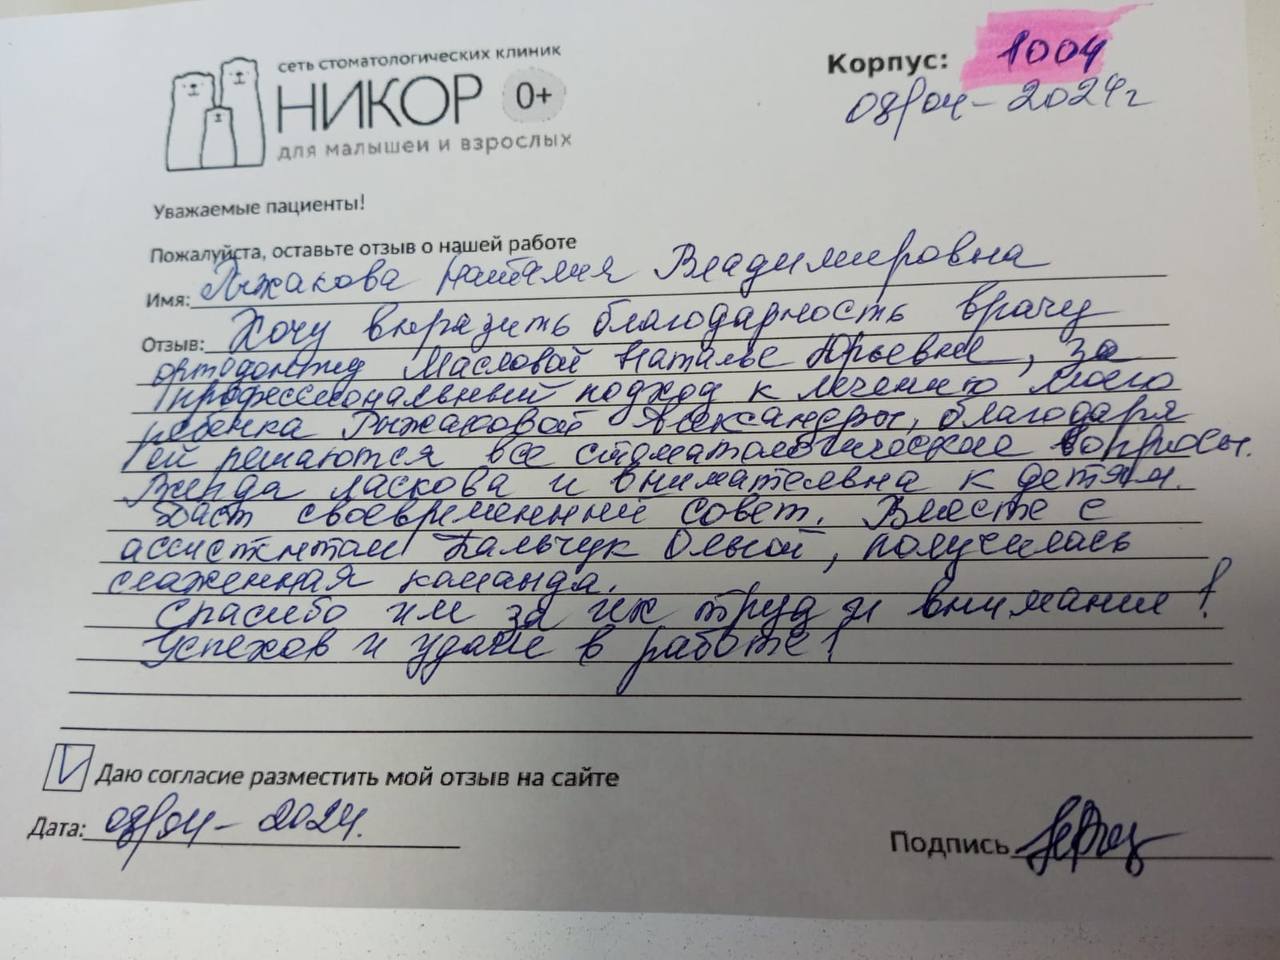 сеть стоматологических клиник
НИКОР 0+
для малышей и взрослых
Корпус: 1004
08/04-2024г
Уважаемые пациенты!
Пожалуйста, оставьте отзыв о нашей работе
Имя: Рыжакова Наталия Владимировна
Отзыв: Хочу выразить благодарность врачу
ортодонту Масловой Наталье Юрьевне, за
профессиональный подход к лечению моего
ребенка Рыжаковой Александры, благодаря
ей решаются все стоматологические вопросы.
Всегда ласкова и внимательна к детям.
своевременный совет. Вместе с
ассистентом Пальчук Ольгой, получилась
слаженная команда.
Спасибо им за их труд и внимание!
Успехов и удачи в работе!
Даю согласие разместить мой отзыв на сайте
Дата: 08/04-2024.
Подпись